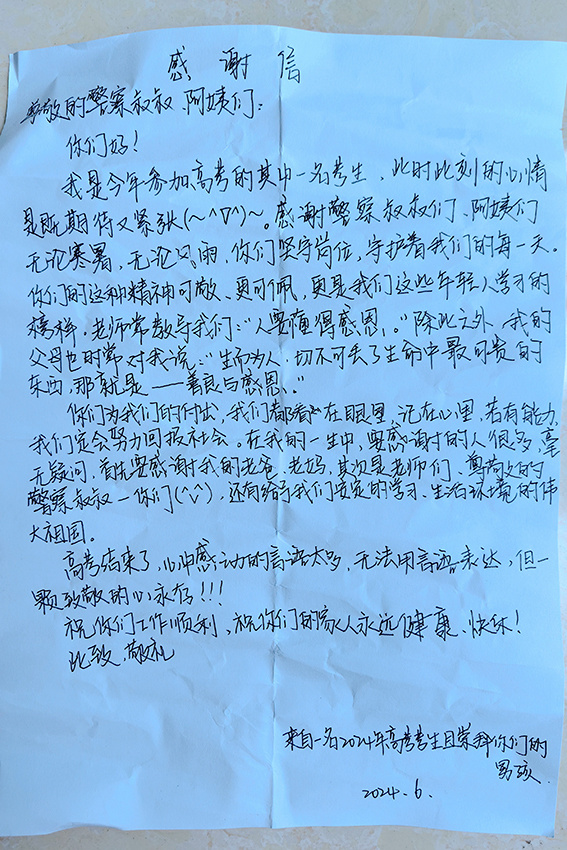 感谢信
尊敬的警察叔叔、阿姨们：
你们好！
我是今年参加高考的其中一名考生，此时此刻的心情
是既期待又紧张(~^∇^)~。感谢警察叔叔们、阿姨们
无论寒暑，无论风雨，你们坚守岗位，守护着我们的每一天。
你们的这种精神可敬、更可佩，更是我们这些年轻人学习的
榜样。老师常教导我们："人要懂得感恩。"除此之外，我的
父母也时常对我说："生而为人，切不可丢了生命中最可贵的
东西，那就是——善良与感恩。"
你们为我们的付出，我们都看在眼里，记在心里，若有能力，
我们定会努力回报社会。在我的一生中，要感谢的人很多，毫
无疑问，首先要感谢我的老爸、老妈，其次是老师们、尊敬的
警察叔叔—你们(^v^)，还有给予我们安定的学习、生活环境的伟
大祖国。
高考结束了，心中感动的言语太多，无法用言语表达，但一
颗致敬的心永存！！！
祝你们工作顺利，祝你们的家人永远健康、快乐！
此致，敬礼
来自一名2024年高考考生且崇拜你们的
男孩.
2024.6.